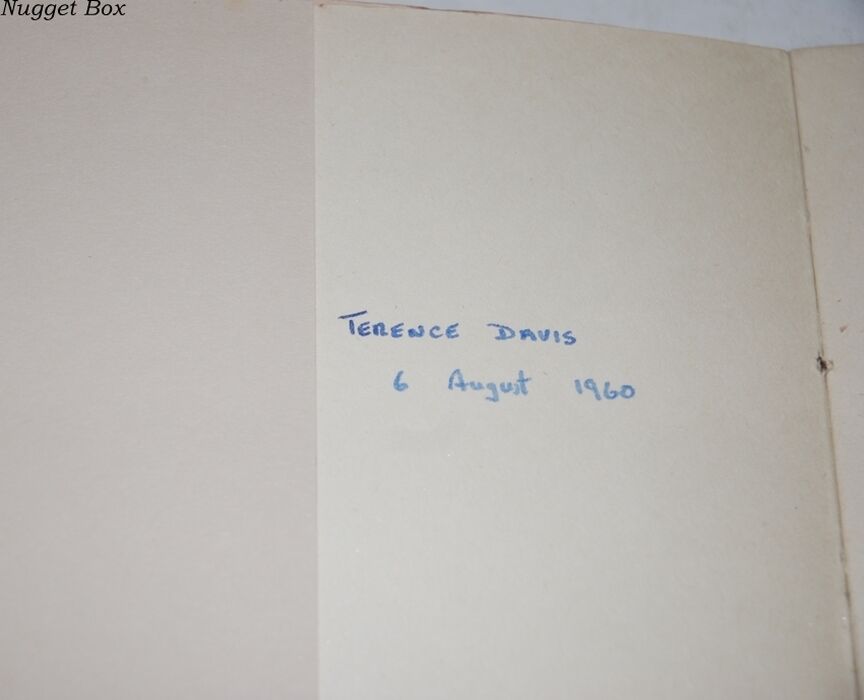 Nugget Box
TERENCE DAVIS
6 August 1960